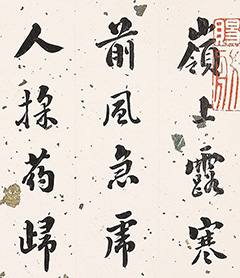 嶺上露寒
前風急虎
人採药歸